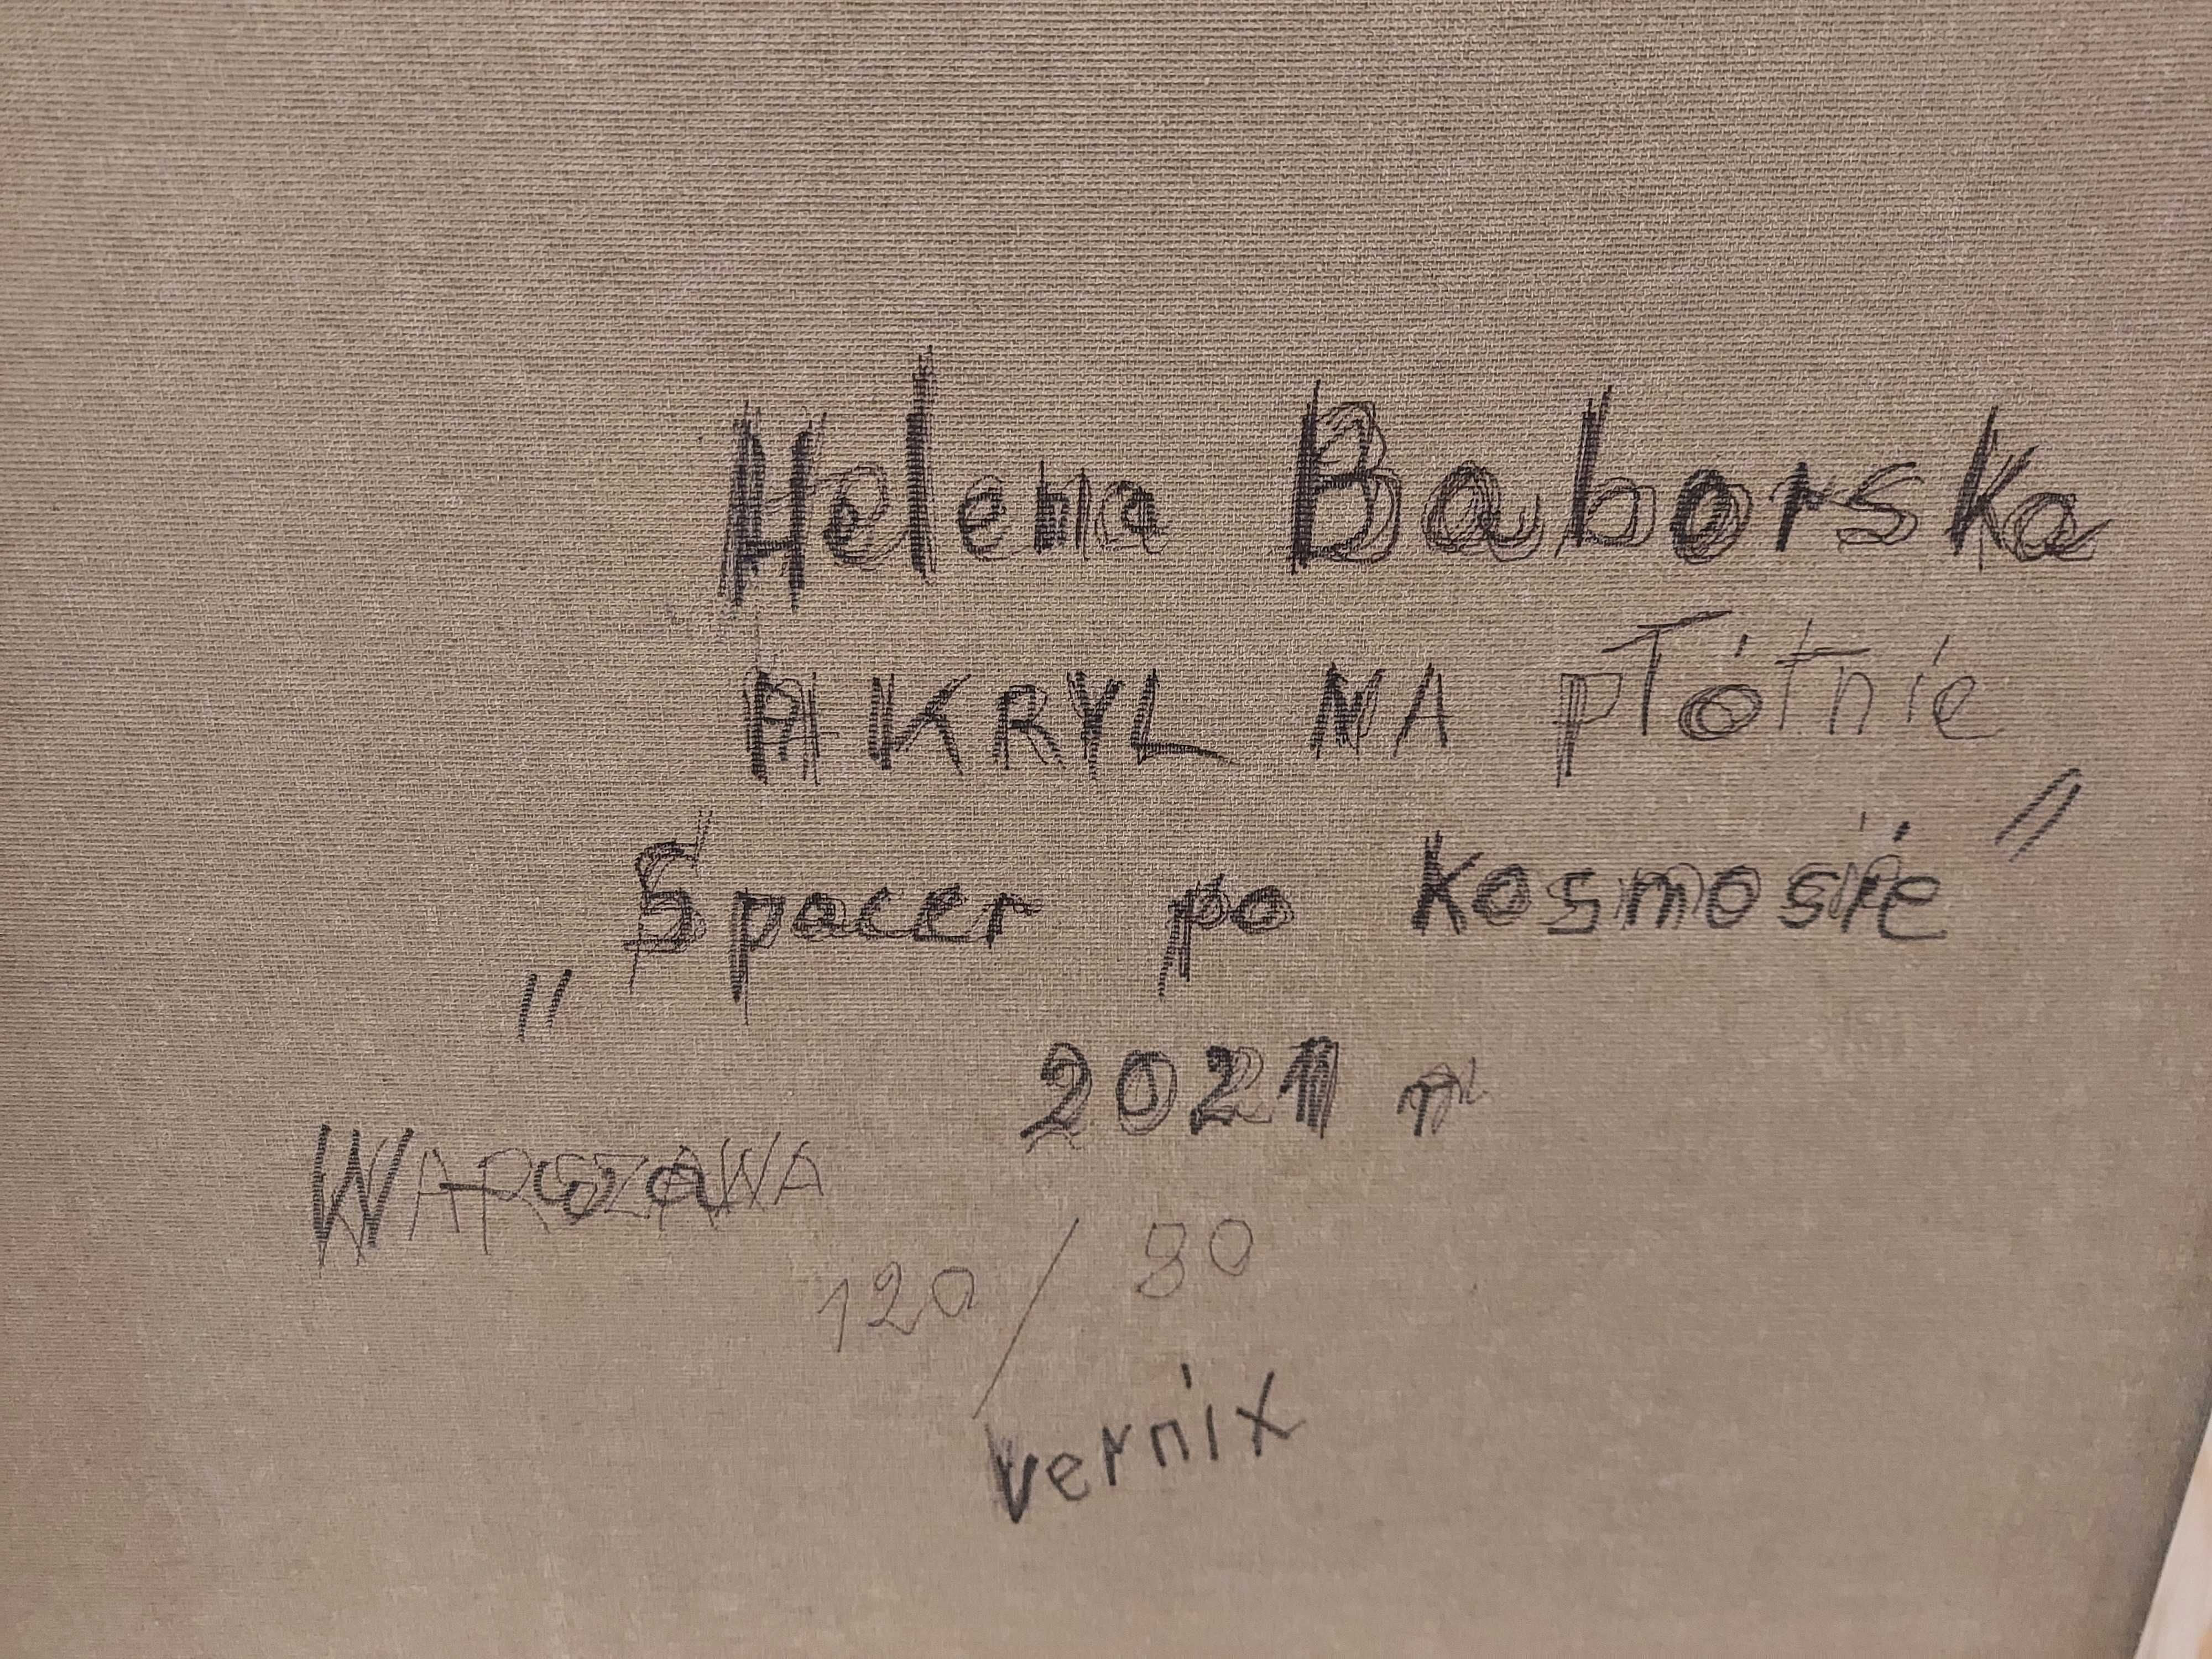 Helena Baborska
AKRYL NA płótnie
„Spacer po kosmosie"
2021 r
WARSZAWA
120 / 80
vernix